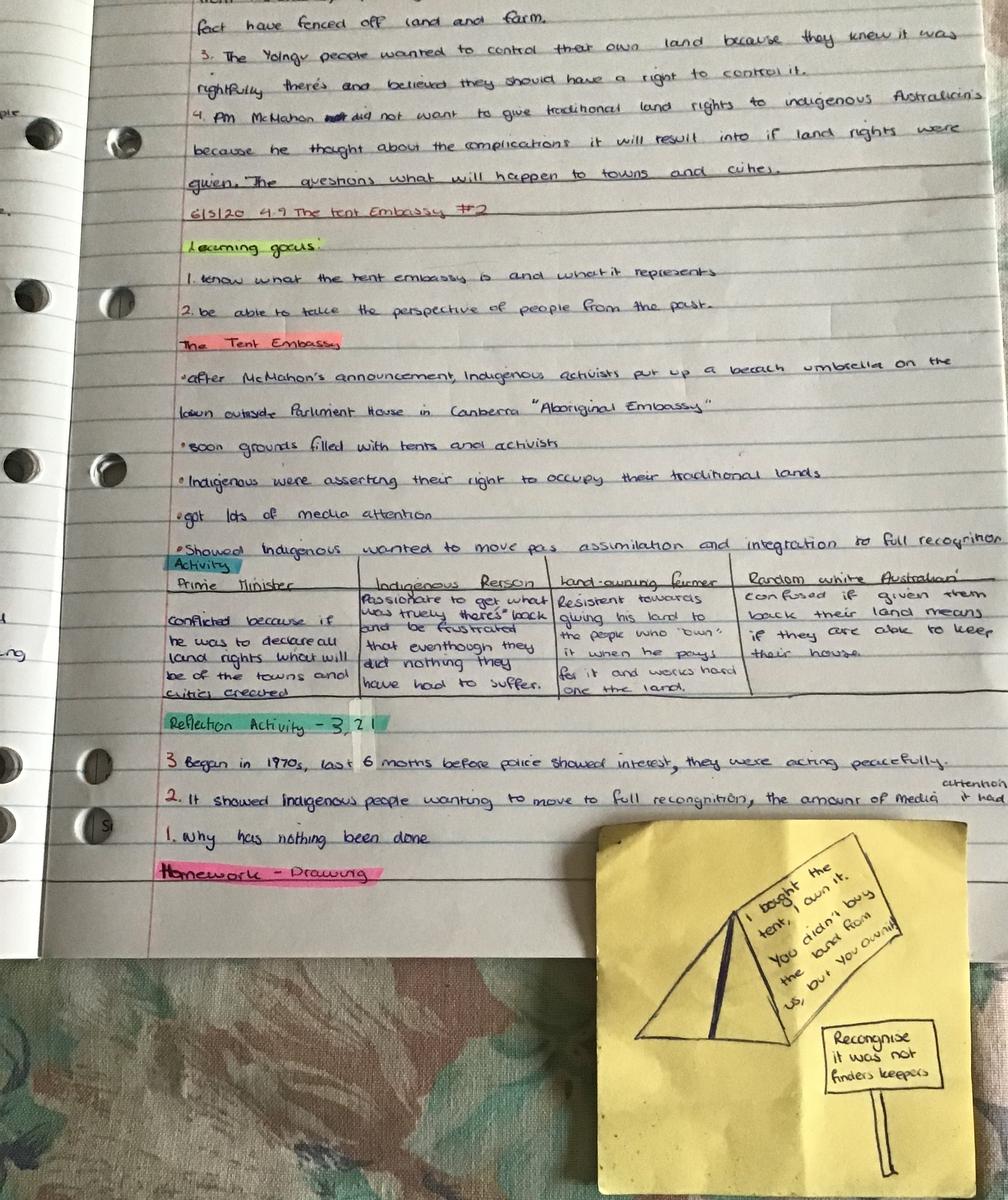 fact have fenced off land and farm.
3. The Yolngu people wanted to control their own land because they knew it was
rightfully there's and believed they should have a right to control it.
4. PM McMahon did not want to give traditional land rights to indigenous Australian's
because he thought about the complications it will result into if land rights were
given. The questions what will happen to towns and cities.
6/5/20 4.9 The tent Embassy #2
Learning goals:
1. know what the tent embassy is and what it represents
2. be able to take the perspective of people from the past.
The Tent Embassy
•after McMahon's announcement, Indigenous activists put up a beach umbrella on the
lawn outside Parliment House in Canberra "Aboriginal Embassy"
•soon grounds filled with tents and activists
•Indigenous were asserting their right to occupy their traditional lands
•got lots of media attention
•Showed Indigenous wanted to move pas assimilation and integration to full recognition
Activity
Prime Minister
conflicted because if
he was to declare all
land rights what will
be of the towns and
cities created
Indigenous Person
Passionate to get what
was truely there's back
and be frustrated
that eventhough they
did nothing they
have had to suffer.
Land-owning farmer
Resistent towards
giving his land to
the people who "own"
it when he pays
for it and works hard
one the land.
Random white Australian
confused if given them
back their land means
if they are able to keep
their house.
Reflection Activity - 3, 2 1
3 Began in 1970s, last 6 moths before police showed interest, they were acting peacefully.
2. It showed indigenous people wanting to move to full recongnition, the amount of media attention it had
1. why has nothing been done
Homework - Drawing
I bought the
tent, I own it.
You didn't buy
the land from
us, but you own it
Recongnise
it was not
finders keepers